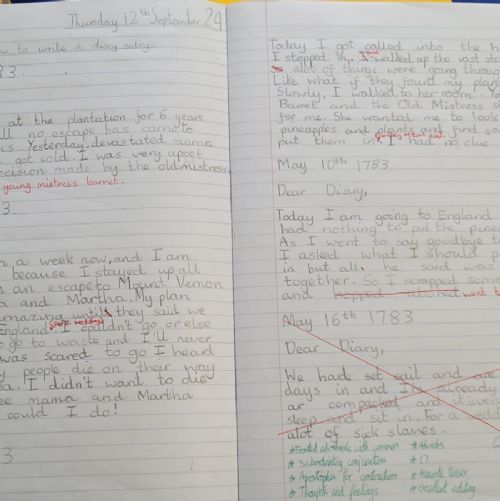 Thursday 12th September 29
w to write a diary entry.
83.
at the plantation for 6 years
ll no escape has came to
us. Yesterday, devastated mama
got sold. I was very upset
ecision made by the old mistress,
young mistress barret.
3.
n a week now, and I am
because I stayed up all
n an escape to Mount Vernon
a and Martha. My plan
amazing until they said we
England. I couldn't go or else
go to waste and I'll never
was scared to go I heard
y people die on their way.
a. I didn't want to die
ee mama and Martha
could I do!
3
Today I got called into the h
I stepped in. I walked up the vast sta
alot of things were going throu
Like what if they found my play
Slowly, I walked to her room. Yo
Barret and the Old Mistress
for me. She wanted me to look
pineapples and plants and find so
put them I had no clue.
May 10th 1783
Dear Diary,
Today I am going to England
had nothing to put the pine
As I went to say goodbye t
I asked what I should p
in but all he said was
together. So I scrapped some
and hopped aboard went b
May 16th 1783
Dear Diary,
We had set sail and are
days in and I'm already
ar compacted and it's very
sleep and sit in. For a
alot of sick slaves.
* Fronted adverbials with commas * Adverbs
* Subordinating conjunction * ()
* Apostrophes for contraction * Accurate tenses
* Thoughts and feelings * excellent editing